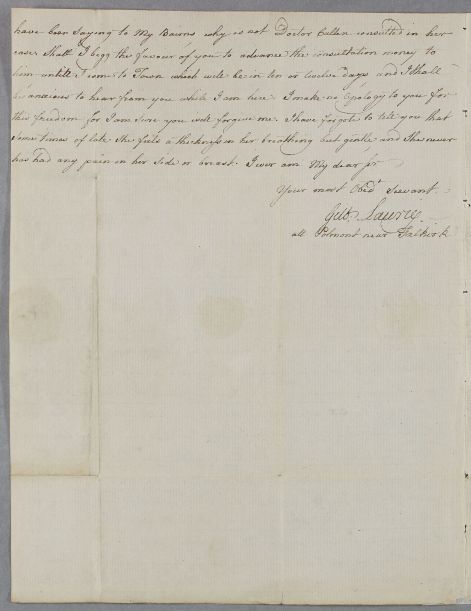 have been saying to My Bairns why is not Doctor Cullen consulted in her
case. Shall I begg the favour of you to advance the consultation money to
him untill I come to Town which will be in ten or twelve days and I shall
be anxious to hear from you while I am here. I make no Apology to you for
this freedom for I am sure you will forgive me. I have forgote to tell you that
some times of late She feels a thickness in her breathing but gentle and She never
has had any pain in her side or breast. I ever am My dear Sr
Your most Obedt Servant.
Gilb. Laurie.
att Polmont near Falkirk